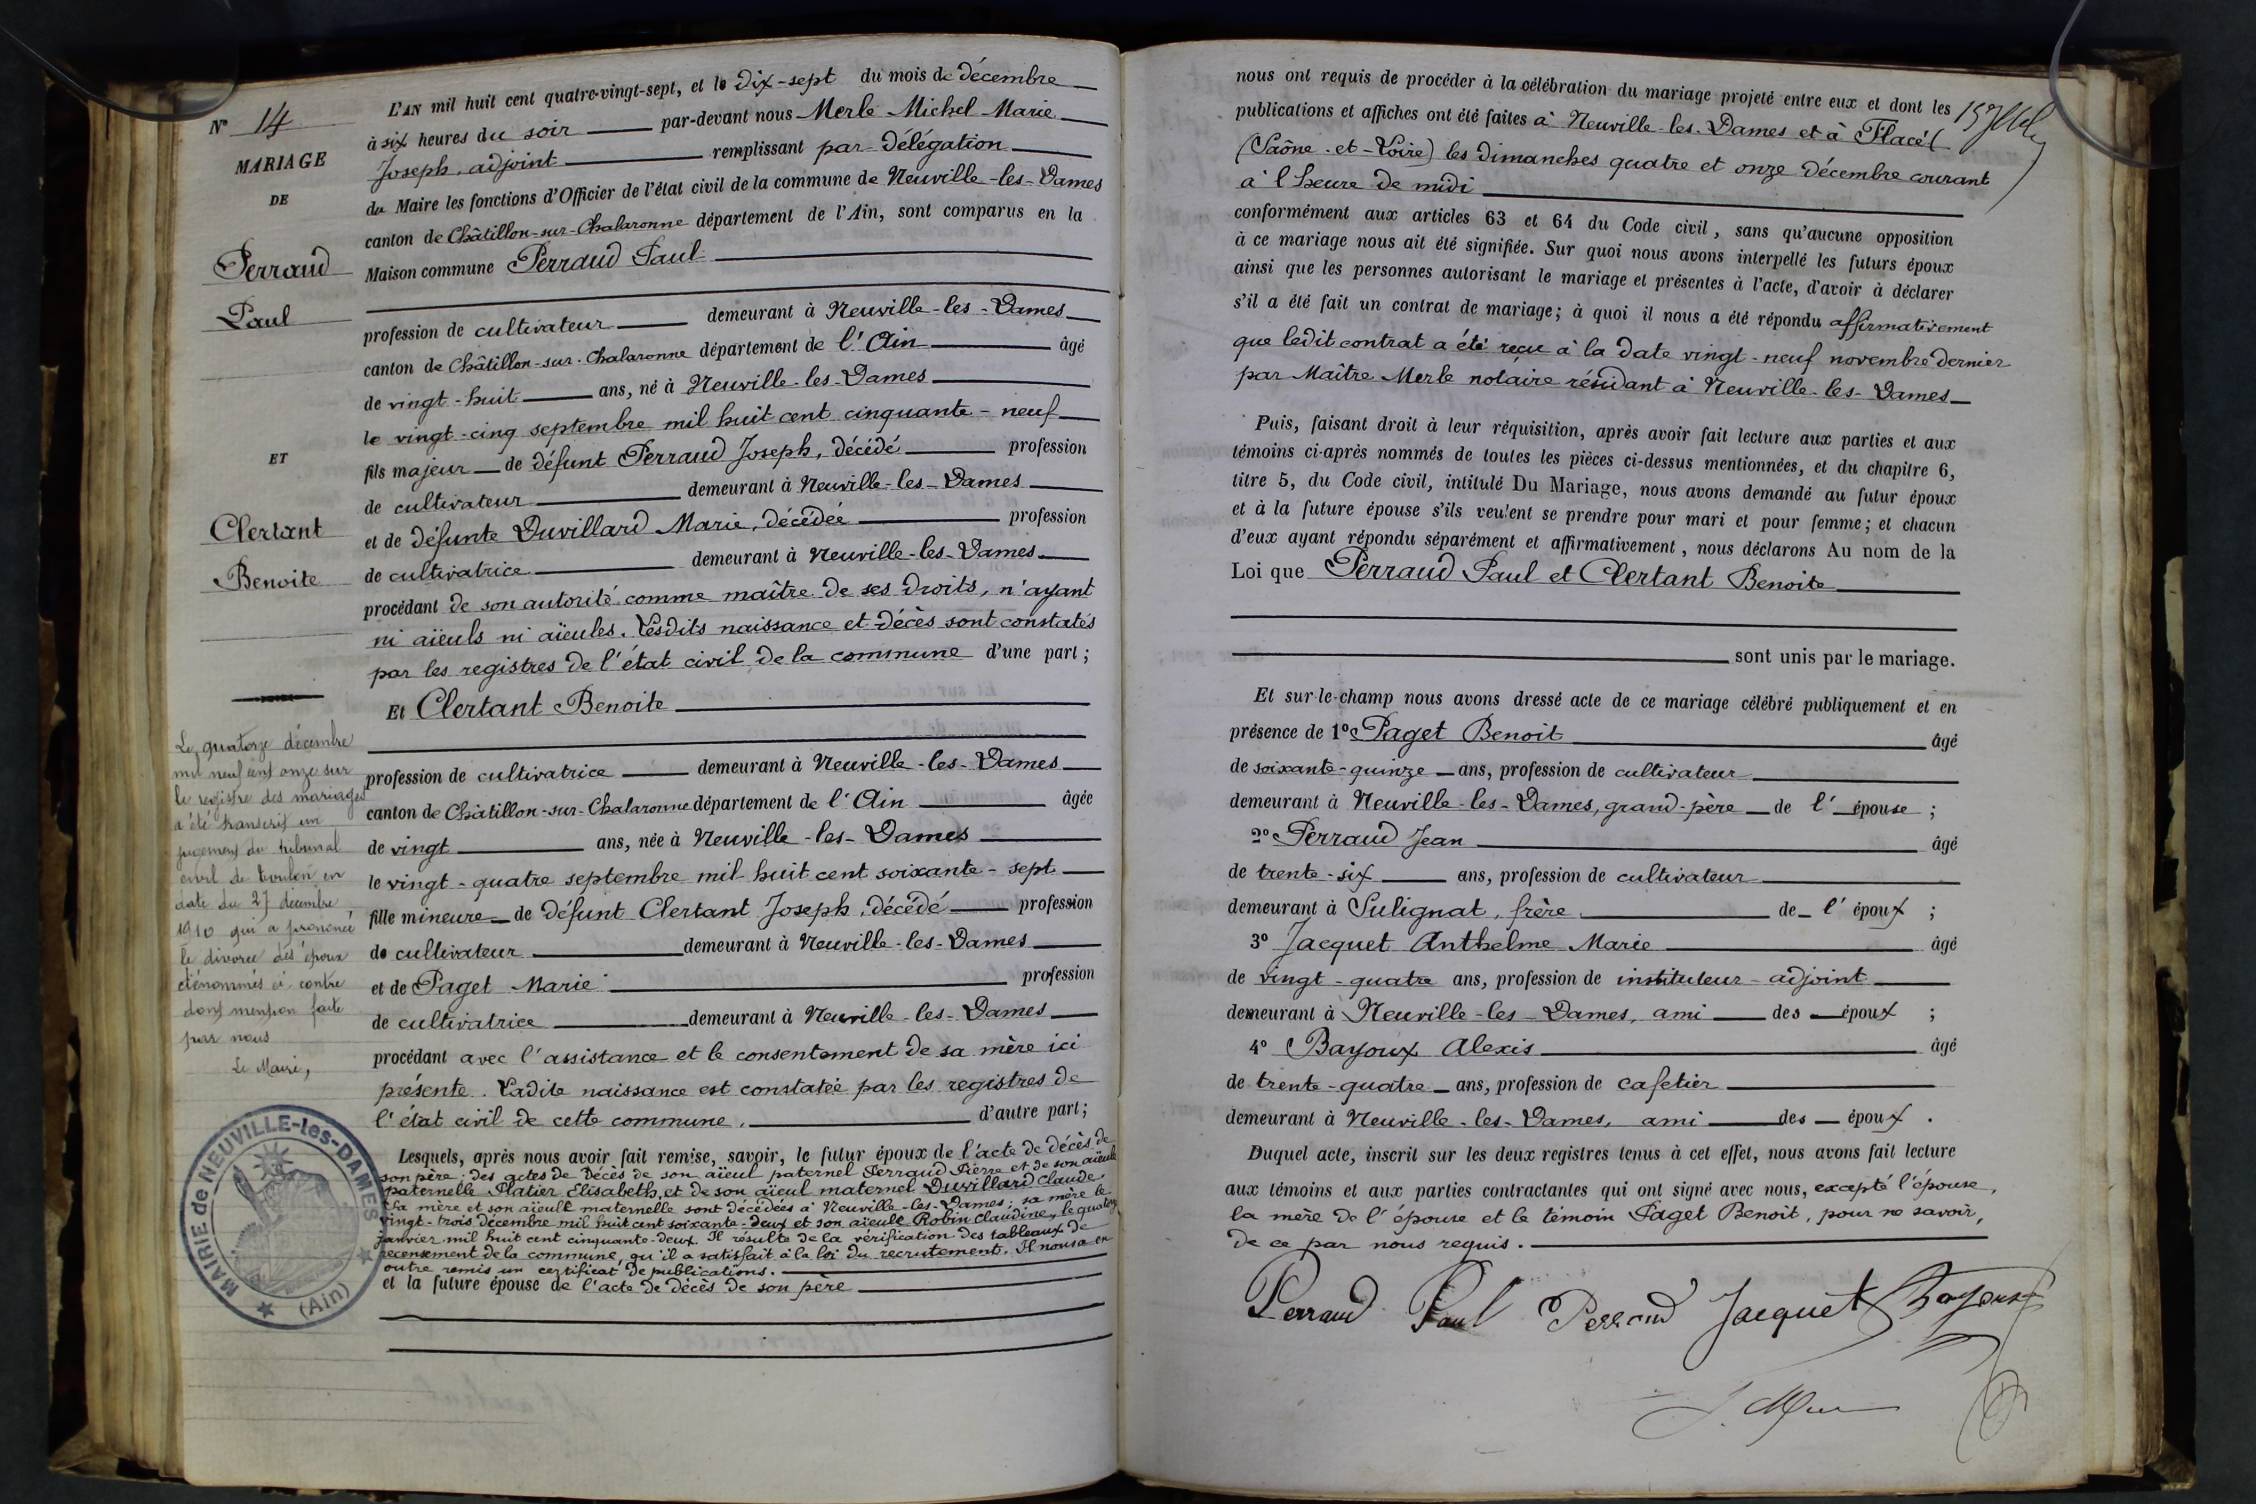 N° 14
MARIAGE
DE
Perraud
Paul
ET
Clertant
Benoite
Le quatorze décembre
mil neuf cent onze sur
le registre des mariages
a été transcrit un
jugement du tribunal
civil de Toulon en
date du 27 décembre
1910 qui a prononcé
le divorce des époux
dénommés ci contre
dont mention faite
par nous
Le Maire,
MAIRIE de NEUVILLE-les-DAMES
(Ain)
L'AN mil huit cent quatre-vingt-sept, et le dix-sept du mois de décembre
à six heures du soir par-devant nous Merle Michel Marie
Joseph, adjoint remplissant par délégation
du Maire les fonctions d'Officier de l'état civil de la commune de Neuville-les-Dames
canton de Châtillon-sur-Chalaronne département de l'Ain, sont comparus en la
Maison commune Perraud Paul
profession de cultivateur demeurant à Neuville-les-Dames
canton de Châtillon-sur-Chalaronne département de l'Ain âgé
de vingt-huit ans, né à Neuville-les-Dames
le vingt-cinq septembre mil huit cent cinquante-neuf
fils majeur de défunt Perraud Joseph, décédé profession
de cultivateur demeurant à Neuville-les-Dames
et de défunte Duvillard Marie, décédée profession
de cultivatrice demeurant à Neuville-les-Dames
procédant de son autorité comme maître de ses droits, n'ayant
ni aïeuls ni aïeules. Lesdits naissance et décès sont constatés
par les registres de l'état civil de la commune d'une part ;
Et Clertant Benoite
profession de cultivatrice demeurant à Neuville-les-Dames
canton de Châtillon-sur-Chalaronne département de l'Ain âgée
de vingt ans, née à Neuville-les-Dames
le vingt-quatre septembre mil huit cent soixante-sept
fille mineure de défunt Clertant Joseph, décédé profession
de cultivateur demeurant à Neuville-les-Dames
et de Paget Marie profession
de cultivatrice demeurant à Neuville-les-Dames
procédant avec l'assistance et le consentement de sa mère ici
présente. Ladite naissance est constatée par les registres de
l'état civil de cette commune. d'autre part ;
Lesquels, après nous avoir fait remise, savoir, le futur époux de l'acte de décès de
son père ; des actes de décès de son aïeul paternel Perraud Pierre et de son aïeule
paternelle Platier Elisabeth, et de son aïeul maternel Duvillard Claude.
Sa mère et son aïeule maternelle sont décédées à Neuville-les-Dames ; sa mère le
vingt-trois décembre mil huit cent soixante-deux et son aïeule Robin Claudine, le quatorze
janvier mil huit cent cinquante-deux. Il résulte de la vérification des tableaux de
recensement de la commune, qu'il a satisfait à la loi du recrutement. Il nous a en
outre remis un certificat de publications.
et la future épouse de l'acte de décès de son père
nous ont requis de procéder à la célébration du mariage projeté entre eux et dont les
publications et affiches ont été faites à Neuville-les-Dames et à Flacé
(Saône-et-Loire) les dimanches quatre et onze décembre courant
à l'heure de midi
conformément aux articles 63 et 64 du Code civil, sans qu'aucune opposition
à ce mariage nous ait été signifiée. Sur quoi nous avons interpellé les futurs époux
ainsi que les personnes autorisant le mariage et présentes à l'acte, d'avoir à déclarer
s'il a été fait un contrat de mariage ; à quoi il nous a été répondu affirmativement
que ledit contrat a été reçu à la date vingt-neuf novembre dernier
par Maître Merle notaire résidant à Neuville-les-Dames
Puis, faisant droit à leur réquisition, après avoir fait lecture aux parties et aux
témoins ci-après nommés de toutes les pièces ci-dessus mentionnées, et du chapitre 6,
titre 5, du Code civil, intitulé Du Mariage, nous avons demandé au futur époux
et à la future épouse s'ils veulent se prendre pour mari et pour femme ; et chacun
d'eux ayant répondu séparément et affirmativement, nous déclarons Au nom de la
Loi que Perraud Paul et Clertant Benoite
sont unis par le mariage.
Et sur-le-champ nous avons dressé acte de ce mariage célébré publiquement et en
présence de 1° Paget Benoit âgé
de soixante-quinze ans, profession de cultivateur
demeurant à Neuville-les-Dames, grand-père de l'épouse ;
2° Perraud Jean âgé
de trente-six ans, profession de cultivateur
demeurant à Sulignat, frère de l'époux ;
3° Jacquet Anthelme Marie âgé
de vingt-quatre ans, profession de instituteur-adjoint
demeurant à Neuville-les-Dames, ami des époux ;
4° Bayoux Alexis âgé
de trente-quatre ans, profession de cafetier
demeurant à Neuville-les-Dames, ami des époux .
Duquel acte, inscrit sur les deux registres tenus à cet effet, nous avons fait lecture
aux témoins et aux parties contractantes qui ont signé avec nous, excepté l'épouse,
la mère de l'épouse et le témoin Paget Benoit, pour ne savoir,
de ce par nous requis.
Perraud Paul Perraud Jacquet Bayoux